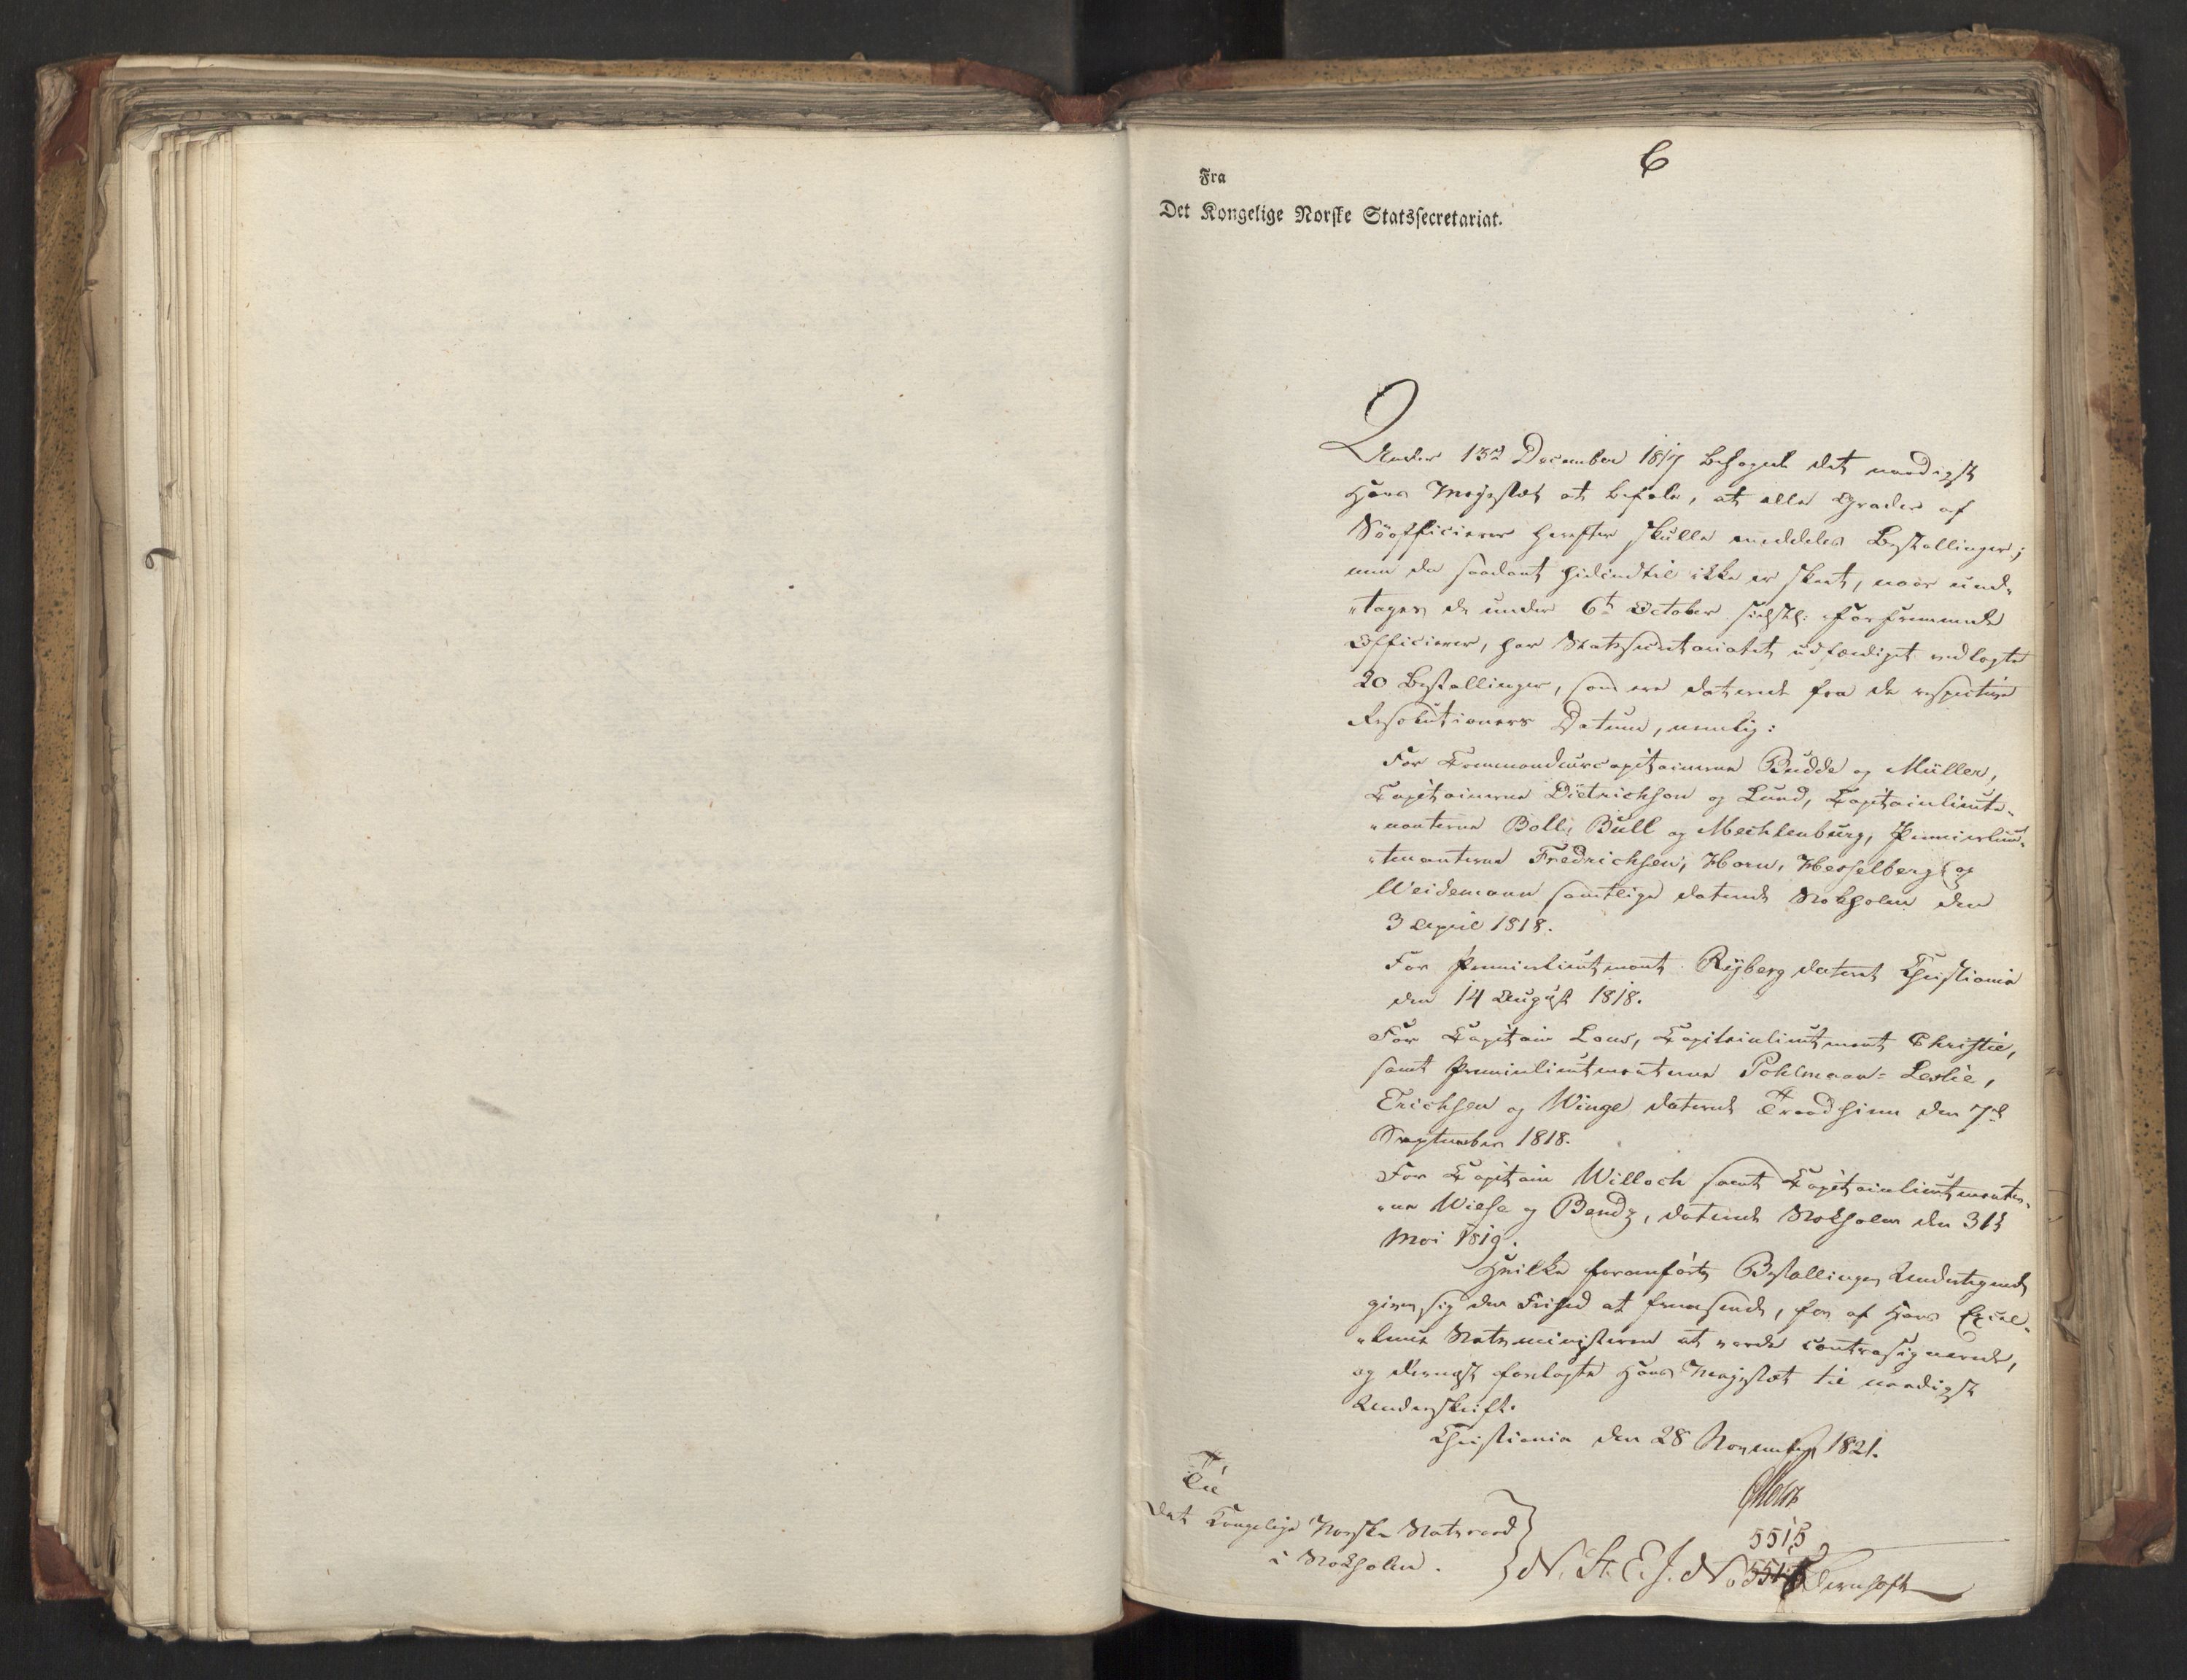 6
Fra
Det Kongelige Norske Statssecretariat.
Under 13de December 1817 behagede det naadigst
Hans Majestæt at befale, at alle Grader af
Söofficierer herefter skulle meddeles Bestallinger;
men da saadant hidindtil ikke er skeet, naar und-
"tages de under 6te October sidstl: forfremmede
Officierer, har Statssecretariatet udfærdiget vedlagte
20 Bestallinger, som ere daterede fra de respective
Resolutioners Datum, nemlig:
For Commandeurcapitainerne Budde og Müller,
Capitainerne Dietrichson og Lund, Capitainlieute-
"nanterne Bolle, Bull og Mechlenburg, Premierlieu-
"tenanterne Fredrichsen, Horn, Hesselberg og
Weidemann samtlige daterede Stokholm den
3 April 1818.
For Premierlieutenant Ryberg dateret Christiania
den 14 August 1818.
For Capitain Lous, Capitainlieutenant Christie,
samt Premierlieutenanterne Pohlmann-Leslie,
Erichsen og Winge daterede Trondhiem den 7de
September 1818.
For Capitain Willoch samt Capitainlieutenanter-
"ne Wiese og Bendz, daterede Stokholm den 31
Mai 1819.
Hvilke foranførte Bestallinger Undertegnede
giver sig den Frihed at fremsende, for af Hans Excel-
"lence Statsministeren at vorde contrasignerede,
og dernæst forelagte Hans Majestæt til naadigst
Underskrift.
Christiania den 28 November 1821.
Holst
Til
Det Kongelige Norske Statsraad
i Stokholm.
5515
N. St. E. J. No